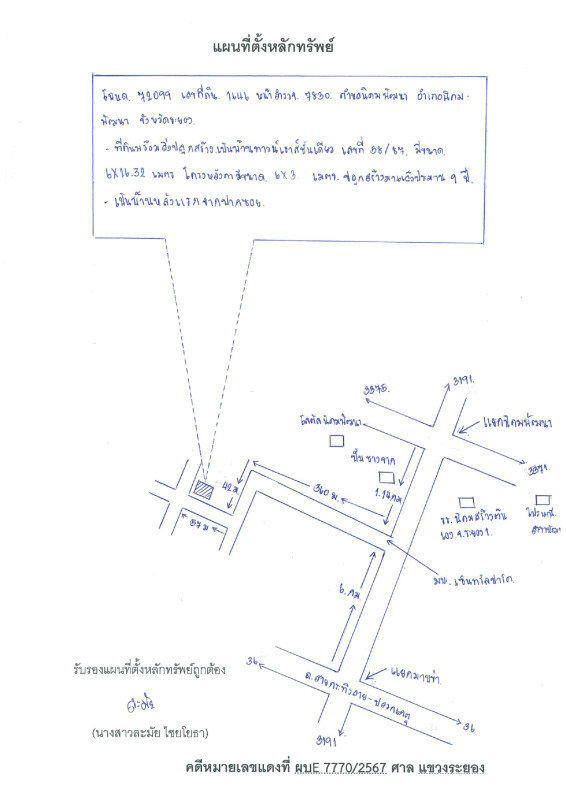 แผนที่ตั้งหลักทรัพย์
โฉนด. 72099 เลขที่ดิน. 1646 หน้าสำรวจ. 7830. ตำบลนิคมพัฒนา อำเภอนิคม-
พัฒนา จังหวัดระยอง.
- ที่ดินพร้อมสิ่งปลูกสร้าง.เป็นบ้านทาวน์เฮาส์ชั้นเดียว เลขที่ 58/87. มีขนาด.
6X16.32 เมตร โครงหลังคามีขนาด 6X3. เมตร. ปลูกสร้างมาแล้วประมาณ 9 ปี.
- เป็นบ้านหลังแรกจากปากซอย.
3191.
3375.
แยกนิคมพัฒนา
โลตัสนิคมพัฒนา
ปั๊มบางจาก
3371.
42 ม
360 ม.
1.14 กม
57 ม
รร. นิคมสร้างตน
เอง จ.ระยอง 1.
ไปรษณีย์
มบ.
6. กม
แยกมาบข่า
36
36
3191
รับรองแผนที่ตั้งหลักทรัพย์ถูกต้อง
ละมัย
(นางสาวละมัย ไชยโยธา)
คดีหมายเลขแดงที่ ผบE 7770/2567 ศาล แขวงระยอง